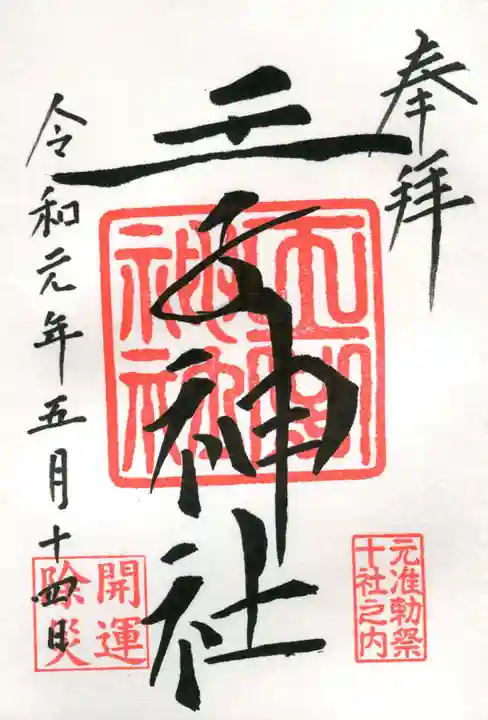 奉拝
元准勅祭
十社之内
王子神社
令和元年五月十四日
開運
除災